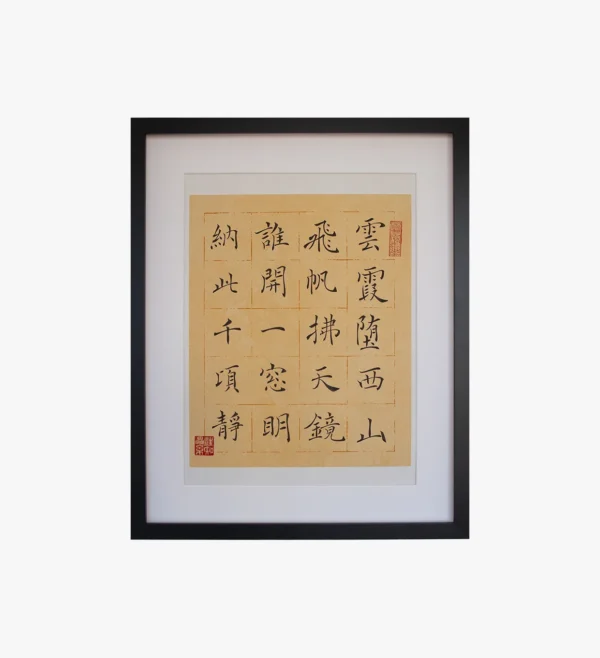 雲霞堕西山
飛帆拂天鏡
誰開一窓明
納此千頃靜